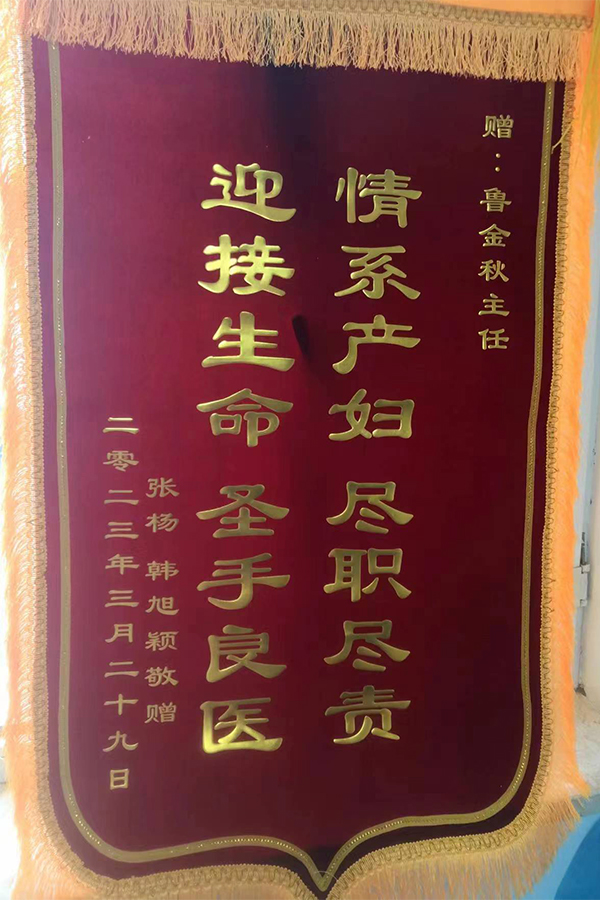 赠：鲁金秋主任
情系产妇 尽职尽责
迎接生命 圣手良医
张杨 韩旭颖敬赠
二零二三年三月二十九日